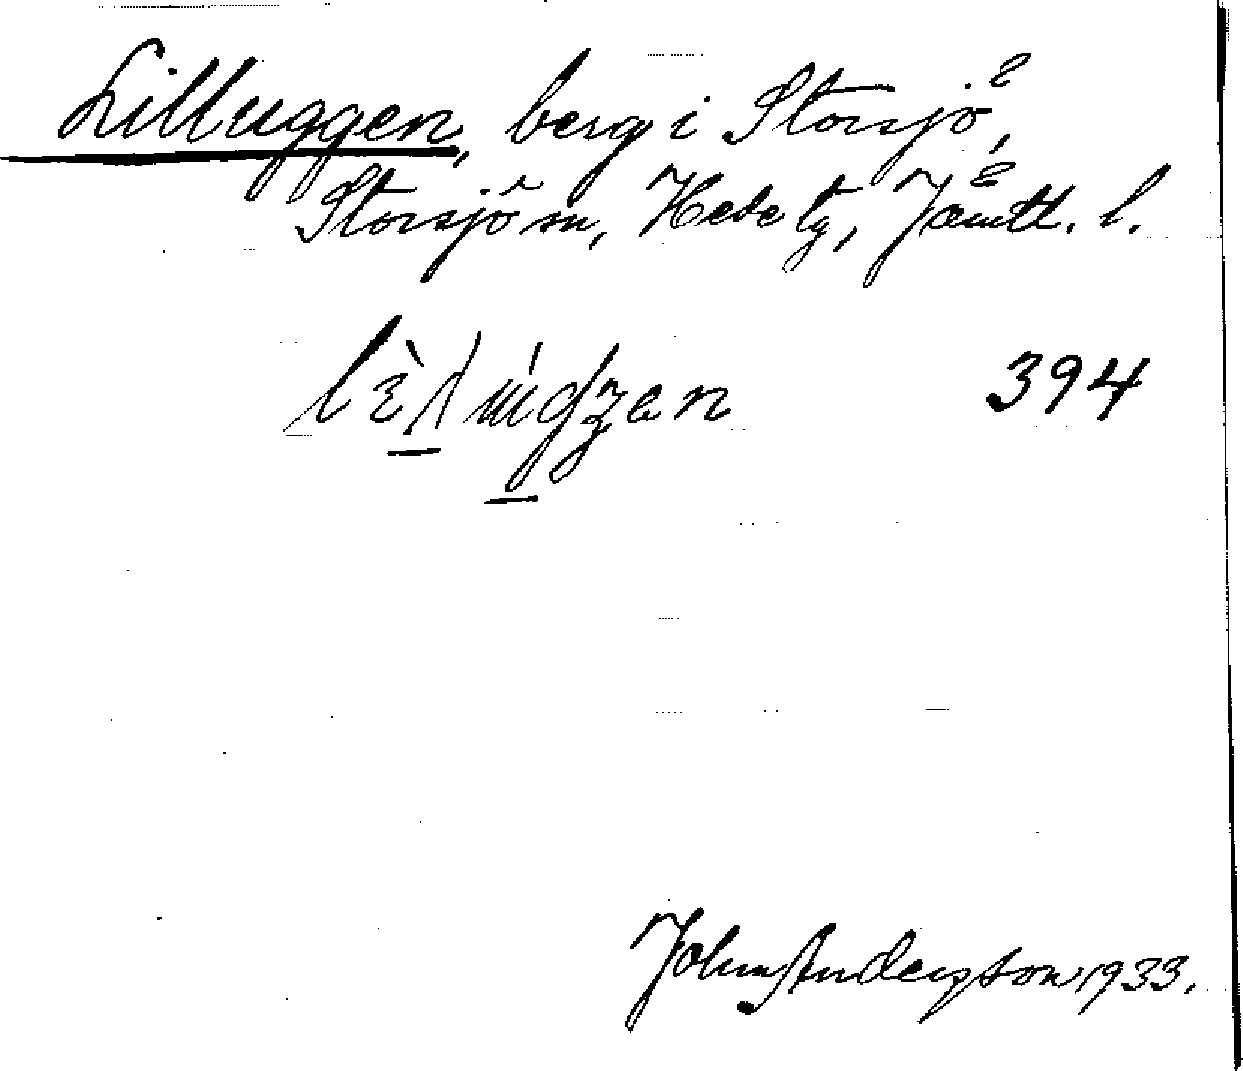 Lilluggen, berg i Storsjö,
Storsjö sn, Hede tg, Jämtl. l.
394
John Anderston 1933.